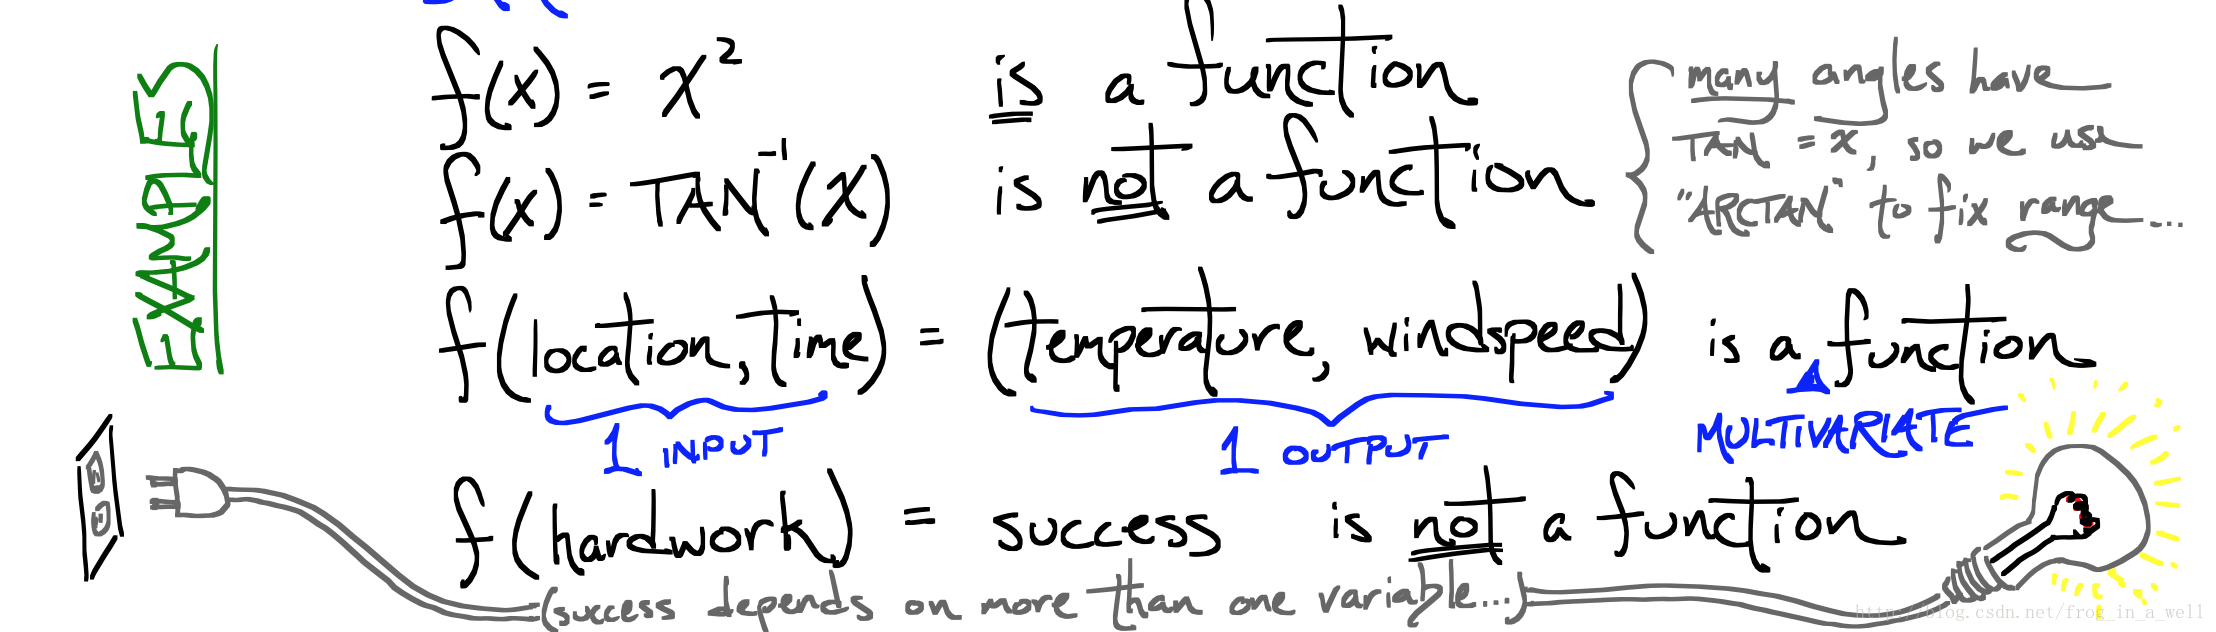 EXAMPLES
f(x) = x² is a function
f(x) = TAN⁻¹(x) is not a function
{ many angles have
TAN = x, so we use
"ARCTAN" to fix range...
f(location, time) = (temperature, windspeed) is a function
1 INPUT 1 OUTPUT MULTIVARIATE
f(hardwork) = success is not a function
(success depends on more than one variable...)
http://blog.csdn.net/frog_in_a_well